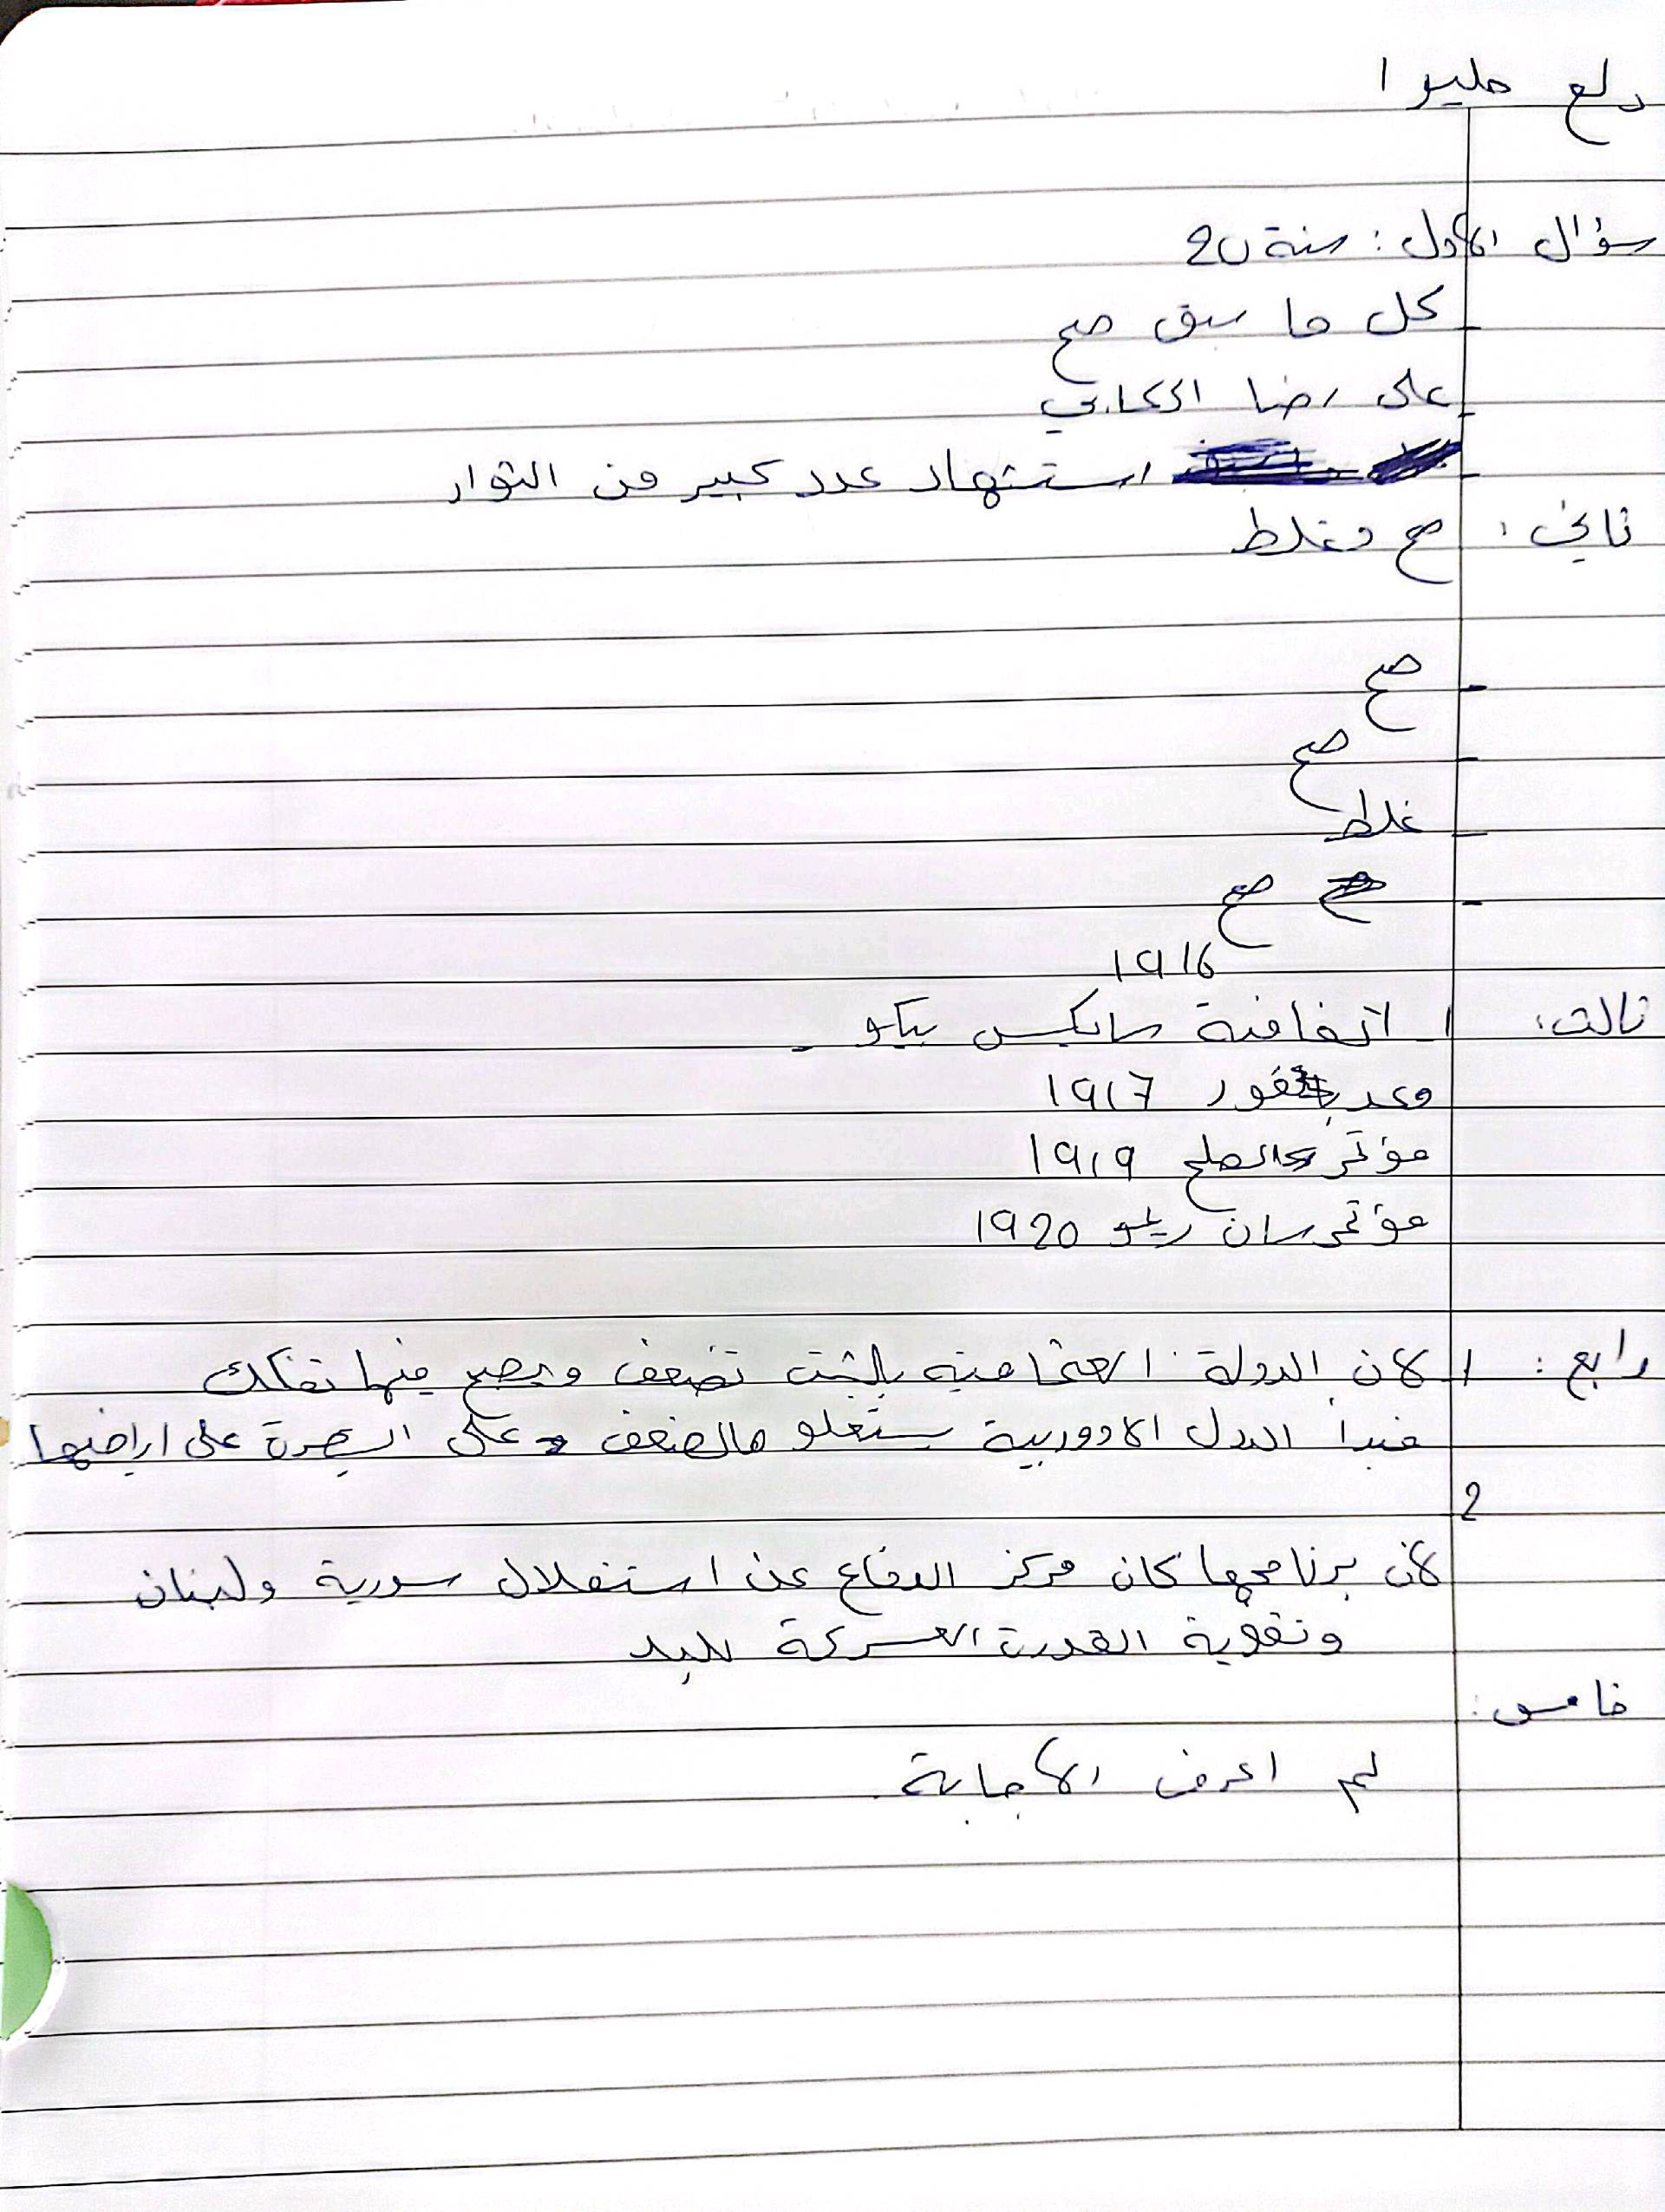 دلع حليوا
سؤال الاول: سنة 20
كل ما سبق صح
على رضا الركابي
استشهاد عدد كبير من الثوار
ثاني: صح وغلط
- صح
- صح
- غلط
- صح
1916
ثالث: 1_ اتفاقية سايكس بيكو
وعد بلفور 1917
مؤتمر الصلح 1919
مؤتمر سان ريمو 1920
رابع: 1 لان الدولة العثمانية بلشت تضعف ويصير فيها تفكك
فبدأ الدول الاوروبية يستغلو هالضعف على السيطرة على اراضيها
2
لان برنامجها كان مركز الدفاع عن استقلال سورية ولبنان
وتقوية القدرت العسكرية للبلد
خامس:
لم اعرف الاجابة